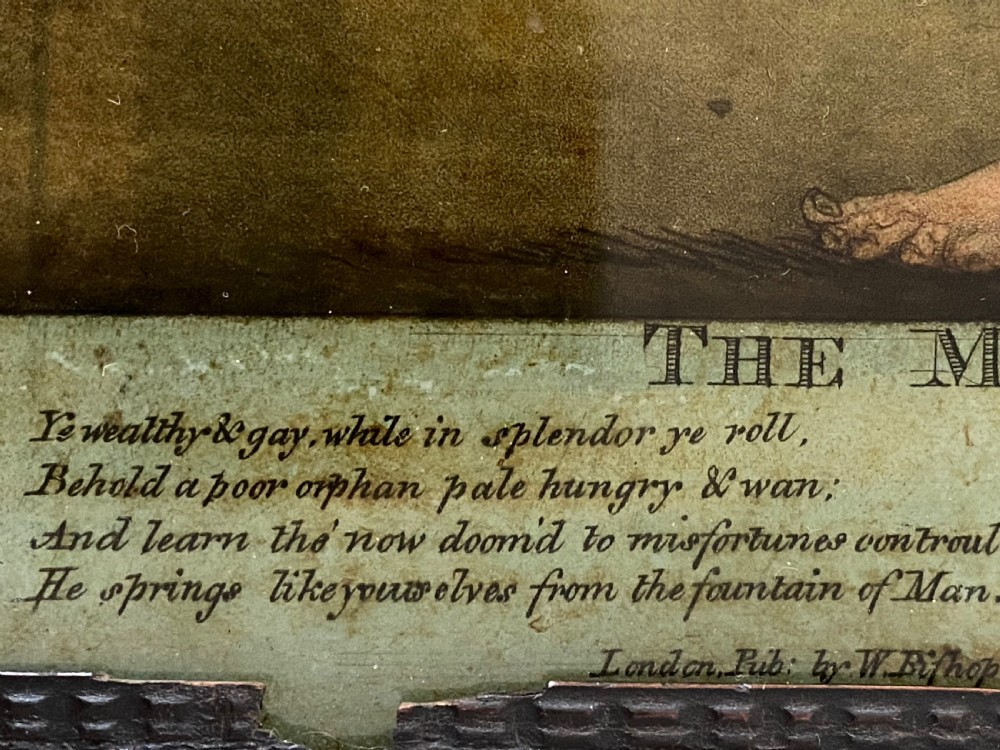 THE M
Ye wealthy & gay, while in splendor ye roll,
Behold a poor orphan pale hungry & wan;
And learn tho' now doom'd to misfortunes controul
He springs like yourselves from the fountain of Man.
London, Pub: by W. Biſhop